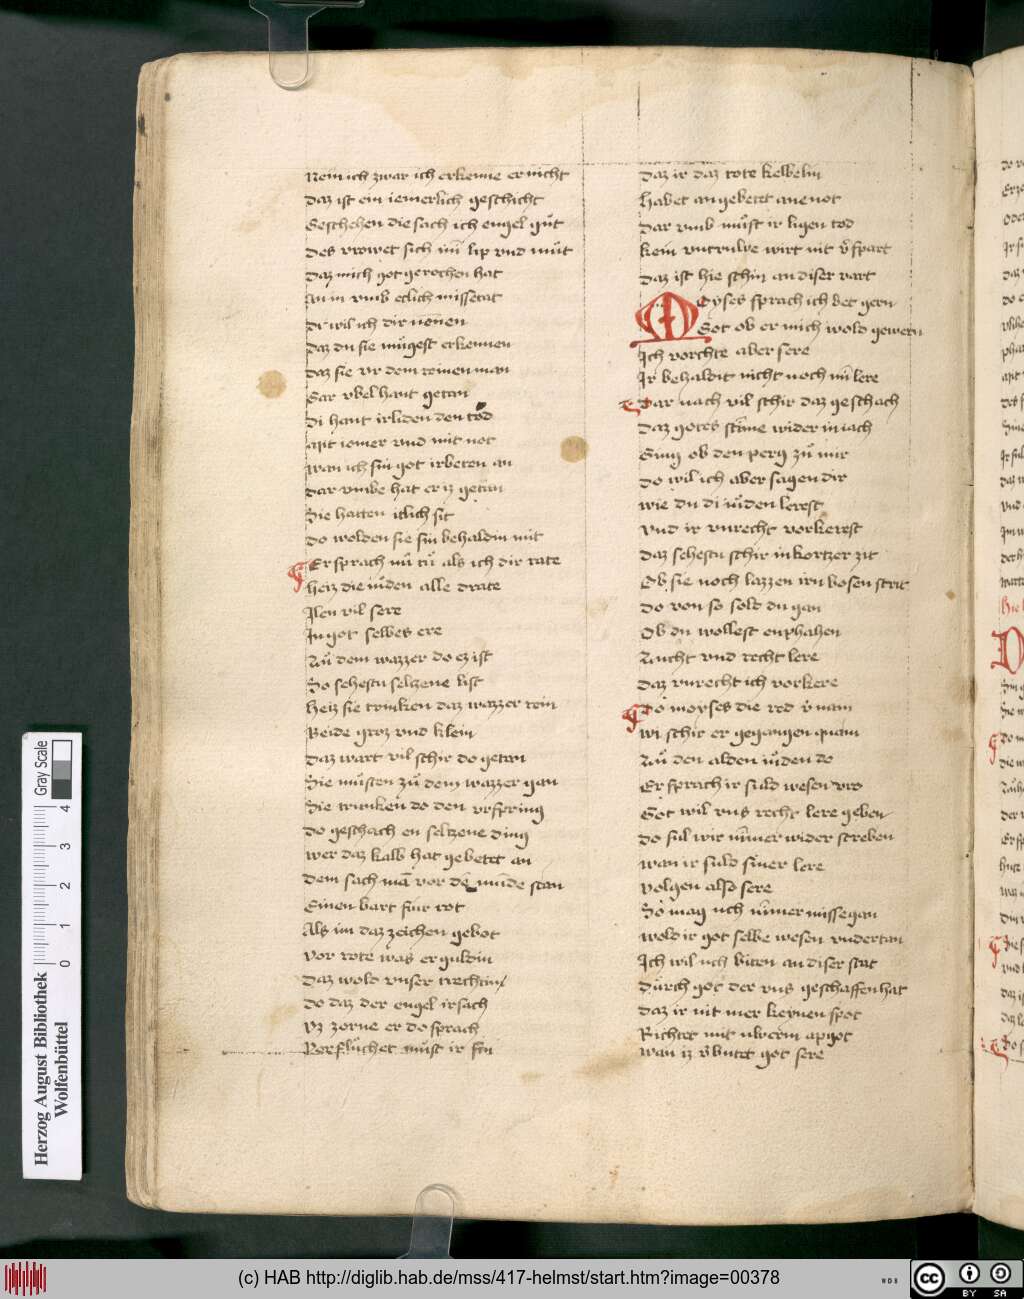 Nein ich zwar ich erkenne er nicht
daz ist ein iemerlich geschicht
Geschehen die sach ich engel gůt
des vrowet sich mī lip vnd můt
daz mich got gerochen hat
an in vmb etlich missetat
di wil ich dir nēnen
daz du sie můgest erkennen
daz sie vr dem reinen man
Gar vbel hant getan
di hant irliden den tod
Mit iomer vnd mit not
wan ich sin got irbeten an
dar vmbe hat er iz getan
Sie hatten itlich sit
do wolden sie sin behaldin mit
Er sprach nū tů als ich dir rate
heiz die iůden alle drate
Jlen vil sere
In got selbes ere
Zů dem wazzer do ez ist
So sehestu seltzene list
heiz sie trinken daz wazzer rein
Beide groz vnd klein
daz wart vil schir do getan
Sie můsten zů dem wazzer gan
Sie trunken do den vrspring
do geschach en seltzene ding
wer daz kalb hat gebetet an
dem sach mā vor dē munde stan
Einen bart fuir rot
Als im daz zeichen gebot
vor rote was er guldin
daz wold vnser trechtin
do daz der engel irsach
vz zorne er do sprach
Vorflůchet můst ir sin
daz ir daz rote kelbelin
habet an gebetet ane not
dar vmb můst ir ligen tod
kein vntruwe wirt nit v̄spart
daz ist hie schin an diser vart
Moyses sprach ich bet gern
Got ob er mich wold gewern
Ich vorchte aber sere
Ir behaldit nicht noch mī lere
Dar nach vil schir daz geschach
daz gotes stime wider in iach
Ging ob den perg zů mir
do wil ich aber sagen dir
wie du di iůden lerest
vnd ir vnrecht vorkerest
daz sehestu schir in kortzer zit
Ob sie noch lazzen irn bosen strit
do von so solt du gan
Ob du wollest enphahen
Zucht vnd recht lere
daz vnrecht ich vorkere
Do moyses die red v̄nam
wi schir er gegangen quam
Zů den alden iůden do
Er sprach ir suld wesen vro
Got wil vns recht lere geben
do sul wir nūmer wider streben
wan ir suld siner lere
volgen also sere
So mag uch nūmer missegan
wold ir got selbe wesen vndertan
Ich wil uch biten an diser stat
durch got der vns geschaffen hat
daz ir nit mer keynen spot
Richtet mit uwerm apgot
wan iz v̄butet got sere
Herzog August Bibliothek
Wolfenbüttel
0 1 2 3 4
Gray Scale
(c) HAB http://diglib.hab.de/mss/417-helmst/start.htm?image=00378
WDB
cc
BY SA